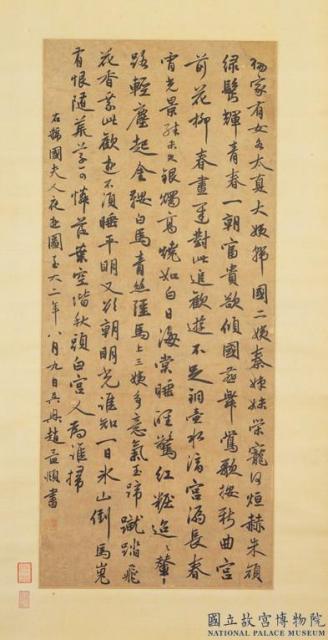 楊家有女名太真大姨虢國二姨秦姊妹榮寵何烜赫朱顏
綠鬢輝青春一朝富貴欲傾國燕舞鶯歌按新曲宮
前花柳春晝遲對此追歡遊不足銅壺水滴宮漏長春
宵光景殊未央銀燭高燒如白日海棠睡涇驚紅粧迢迢輦
路輕塵起金鞍白馬青絲韁馬上三姨多意氣玉蹄蹴踏飛
花香 此歡遊不須睡平明又欲朝明光誰知一日冰山倒馬嵬
有恨隨 草可憐落葉空階秋頭白宮人為誰掃
右虢國夫人夜遊圖至大二年八月九日吳興趙孟頫書
國立故宮博物院
NATIONAL PALACE MUSEUM